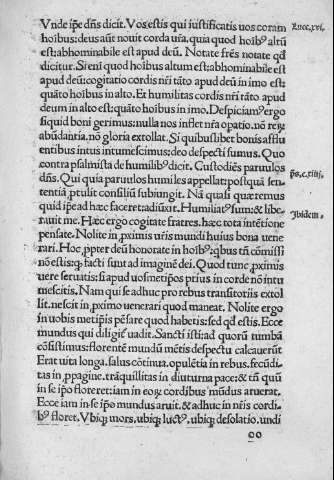 Vnde ip̃e dñs dicit. Vos estis qui iustificatis uos coram
hoĩbus: deus aũt nouit corda ur̃a. quia quod hoĩbꝰ altũ
est: abhominabile est apud deũ. Notate fr̃es notate qđ
dicitur. Si eni quod hoĩbus altum est: abhominabile est
apud deũ: cogitatio cordis nr̃i tãto apud deũ in imo est:
quãto hoĩbus in alto. Et humilitas cordis nr̃i tãto apud
deum in alto est: quãto hoĩbus in imo. Despiciamꝰ ergo
si quid boni gerimus: nulla nos inflet nr̃a opatio. nõ reȝ
abũdantia. nõ gloria extollat. Si quibuslibet bonis afflu
entibus intus intumescimus: deo despecti sumus. Quo
contra psalmista de humilibꝰ dicit. Custodiẽs paruulos
dñs. Qui quia paruulos humiles appellat: postquã sen-
tentiã ptulit consiliũ subiungit. Nã quasi quæremus
quid ip̃e ad hæc faceret: adiũxit. Humiliatꝰ sum: & libe-
rauit me. Hæc ergo cogitate fratres. hæc tota intẽtione
pensate. Nolite in ꝓximis ur̃is mundi huius bona uene
rari. Hoc ꝓpter deũ honorate in hoĩbꝰ: qͥbus tñ cõmissi
nõ estis: qꝫ facti sunt ad imaginẽ dei. Quod tunc ꝓximis
uere seruatis: si apud uosmetipos prius in corde nõ intu
mescitis. Nam qui se adhuc pro rebus transitoriis extol
lit. nescit in ꝓximo uenerari quod maneat. Nolite ergo
in uobis metip̃is pẽsare quod habetis: sed qđ estis. Ecce
mundus qui diligitꝰ uadit. Sancti isti: ad quorũ tumbã
cõsistimus: florentẽ mundũ mẽtis despectu calcauerũt
Erat uita longa. salus cõtinua. opulẽtia in rebus. fecũdi
tas in ꝓpagine. trãquillitas in diuturna pace: & tñ quũ
in se ip̃o floreret: iam in eoꝝ cordibus mũdus aruerat.
Ecce iam in se ip̃o mundus aruit. & adhuc in nr̃is cordi-
bꝰ floret. Vbiqꝫ mors. ubiqꝫ luctꝰ. ubiqꝫ desolatio. undi
oo
Lucc.xvi.
p̃s.c.xiiij
Ibidem